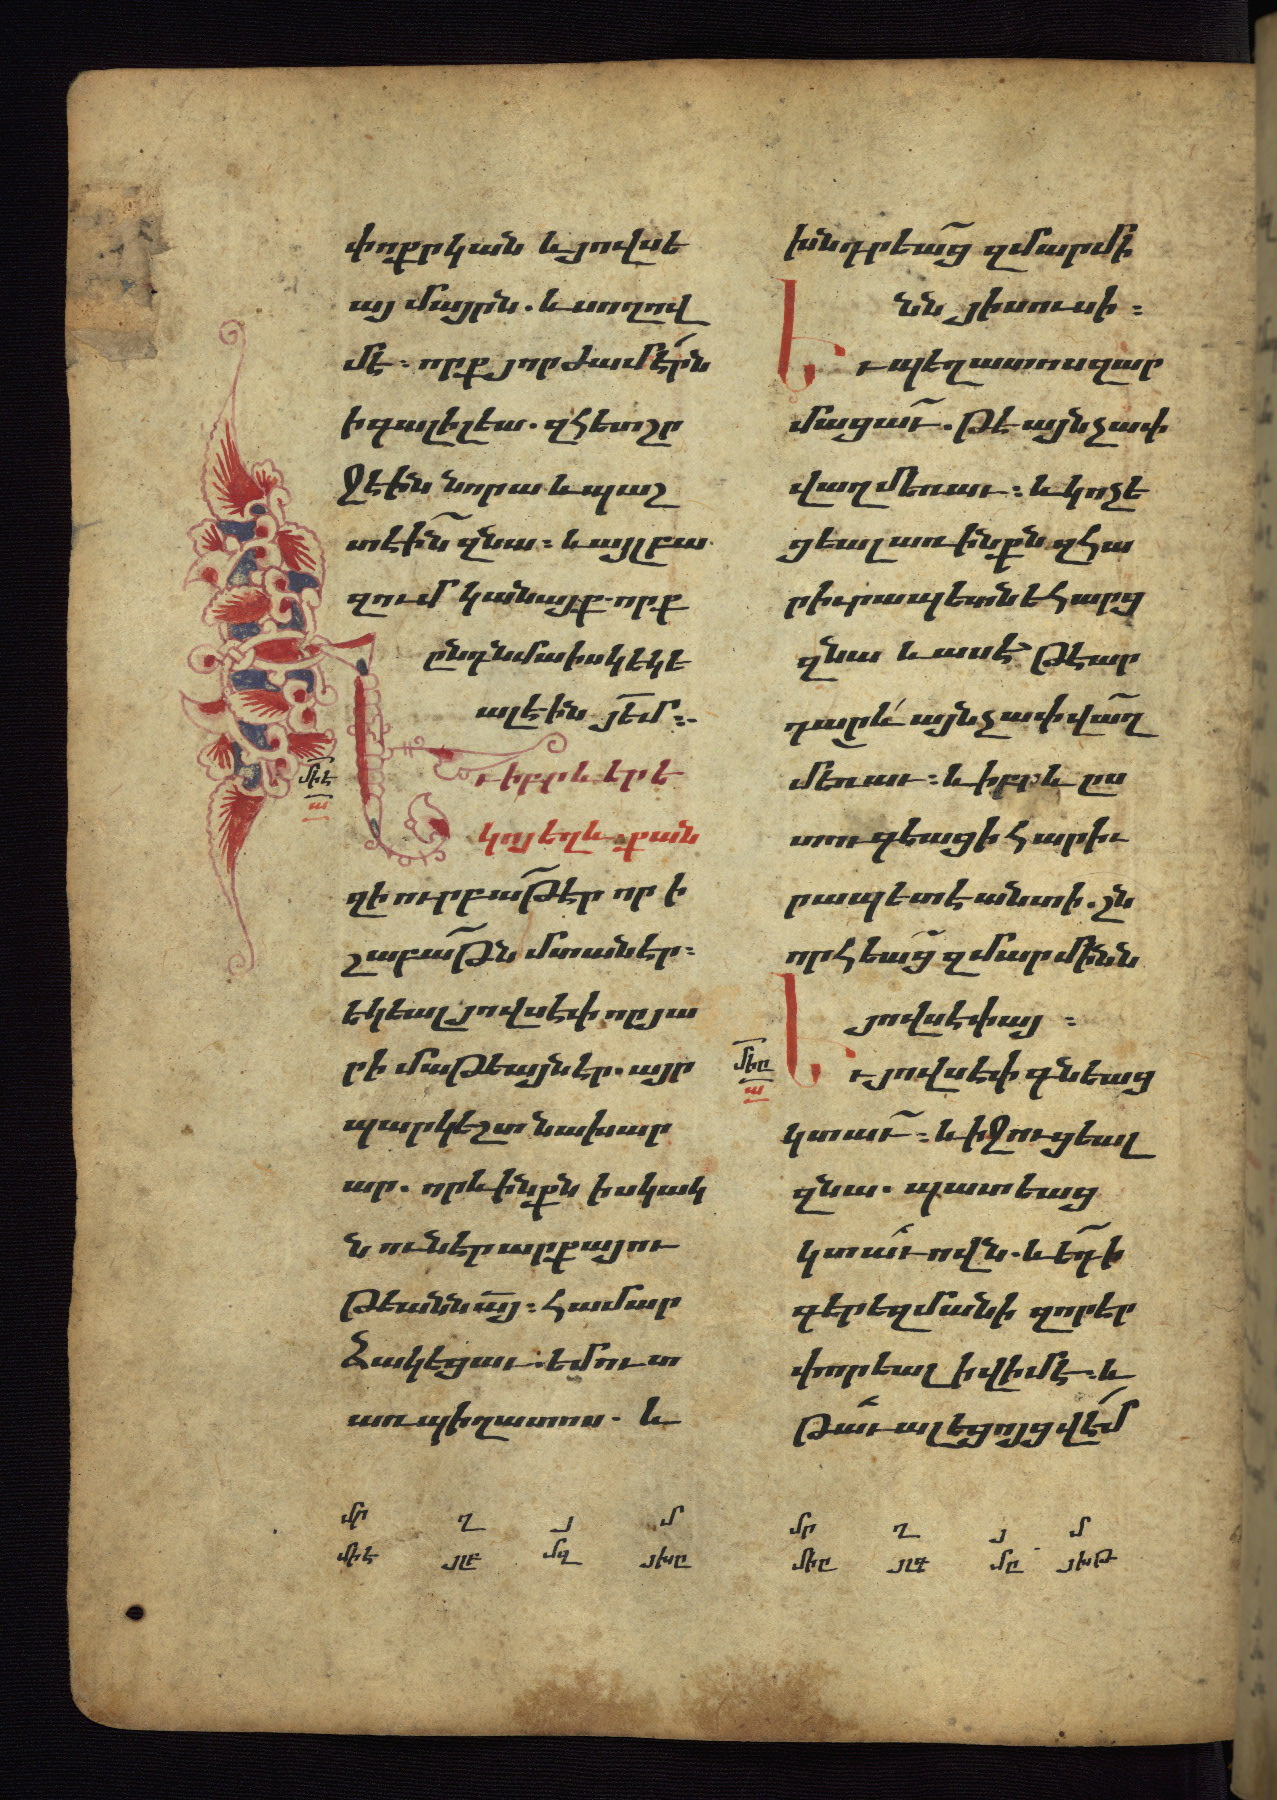 փոքրկան և յովսե
այ մայրն. և սողով
մէ։ որք յորժամ էրն
ի գալիլեա. զհետ շը
ջէին նորա և պաշ
տէին զնա։ և այլ բա
զում կանայք. որք
ընդ նմա իսկ ելե
ալ էին յեմ։
Եւ իբրև երե
կոյ եղև. քան
զի ուրբաթ էր որ ի
շաբաթն մտանէր։
եկեալ յովսէփ որ յա
րիմաթեայ էր. այր
պարկեշտ նախար
ար. որ և ինքն իսկ ակ
ն ունէր արքայու
թեանն այ։ համար
ձակեցաւ. եմուտ
առ պիղատոս. և
խնդրեաց զմարմի
նն յիսուսի։
Եւ պեղատոս զար
մացաւ. թէ այնչափ
վաղ մեռաւ։ և կոչե
ցեալ առ ինքն զհա
րիւրապետն եհարց
զնա և ասէ թէ ար
դարև այնչափ վաղ
մեռաւ։ և իբրև ըս
տուգեաց ի հարիւ
րապետէ անտի. շն
որհեաց զմարմինն
յովսէփայ։
Եւ յովսէփ գնեաց
կտաւ։ և իջուցեալ
զնա. պատեաց
կտաւովն. և եդ ի
գերեզմանի զոր էր
փորեալ ի վիմէ. և
թաւալեցոյց վէմ
միէ
ա
միը
ա
մր ղ յ մ
միէ յլբ մզ յխը
մր ղ յ մ
միը յլգ մը յխթ